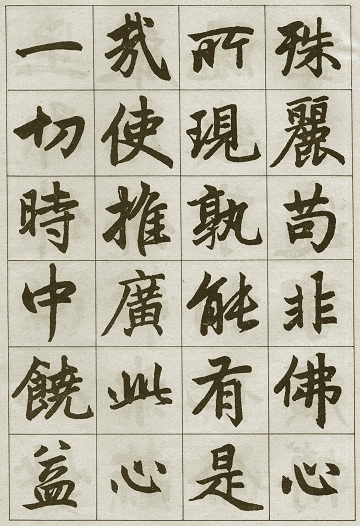 殊麗苟非佛心
所現孰能有是
哉使推廣此心
一切時中饒益